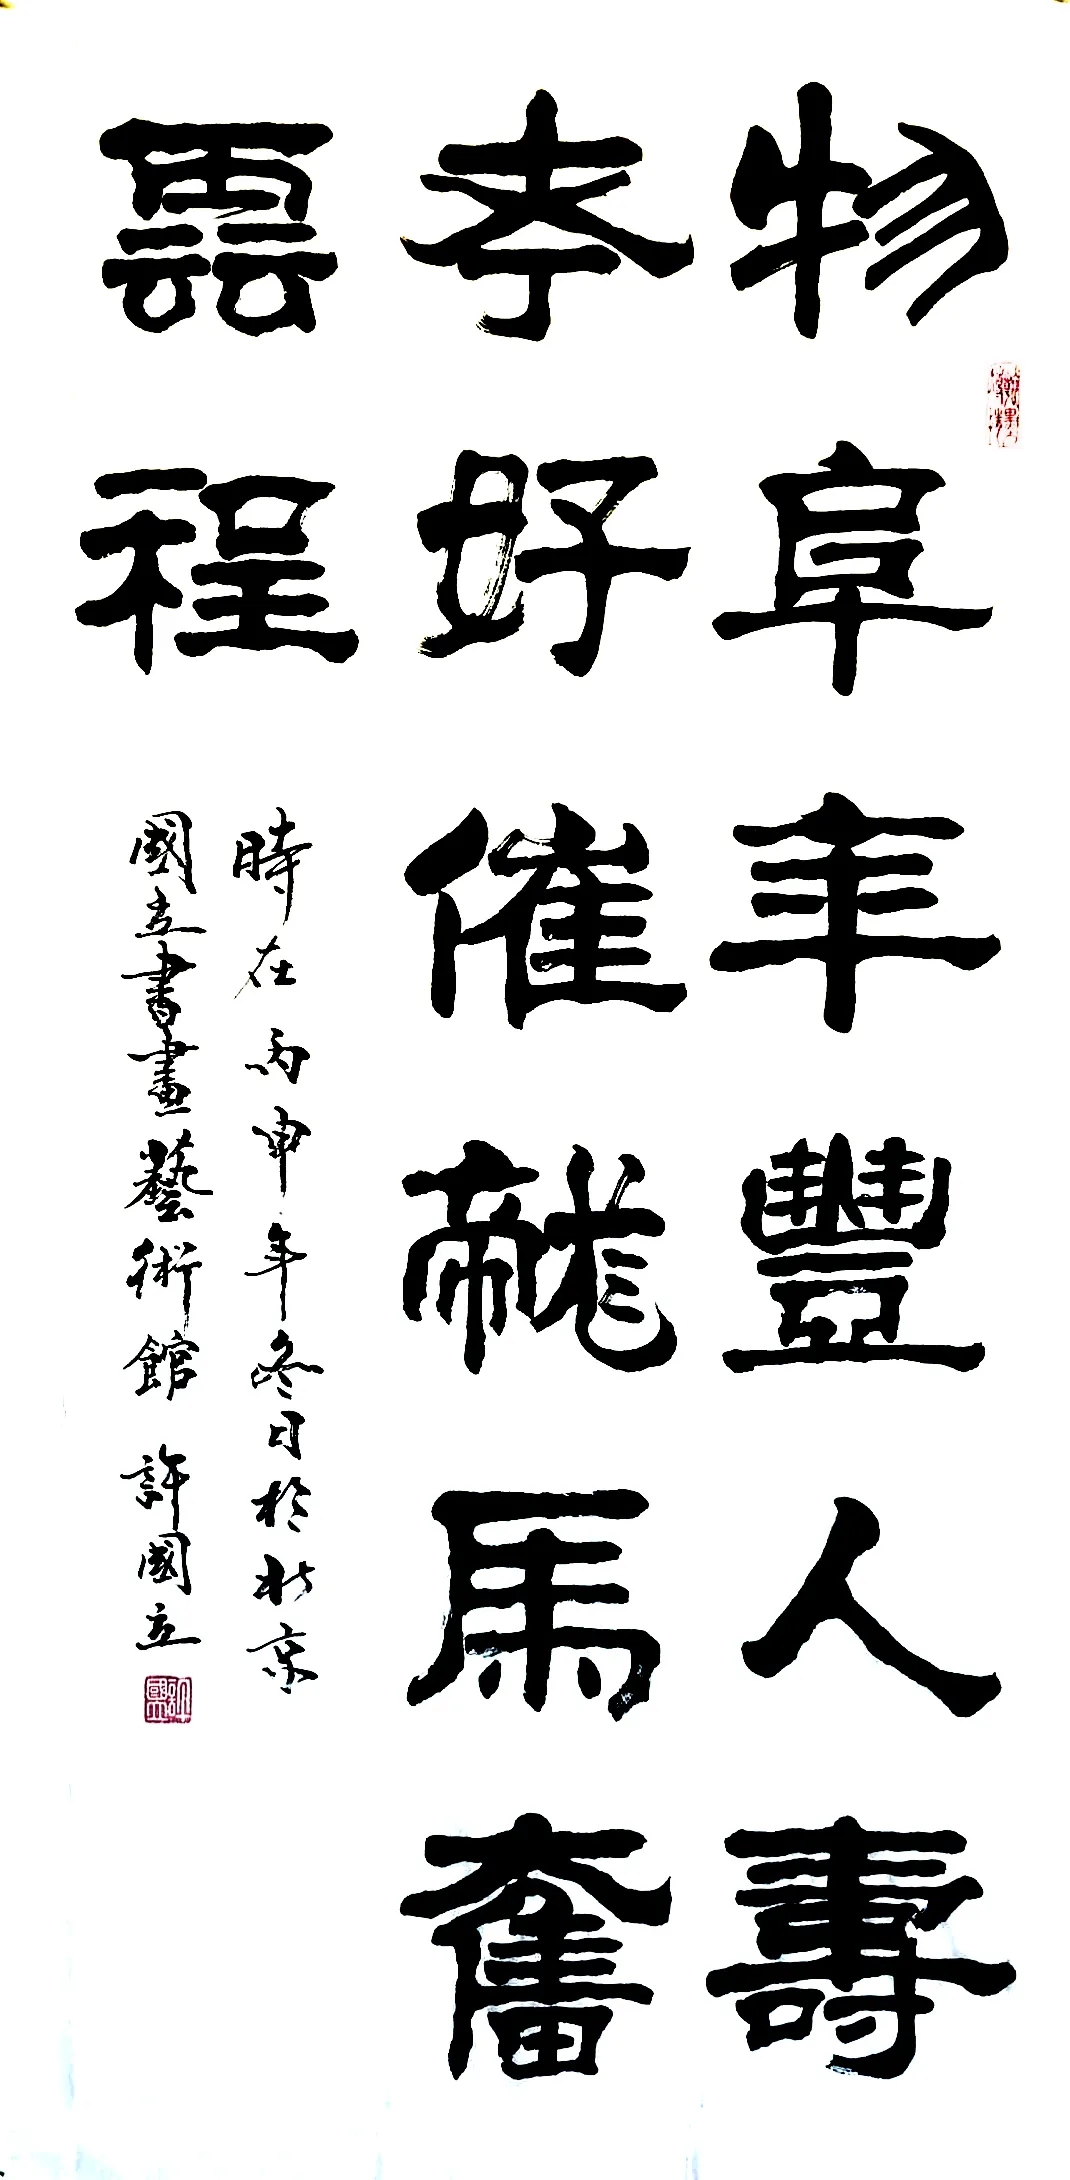 物阜年豐人壽
考好催龍馬奮
雲程
時在丙申年冬日於北京
國立書畫藝術館 許國立